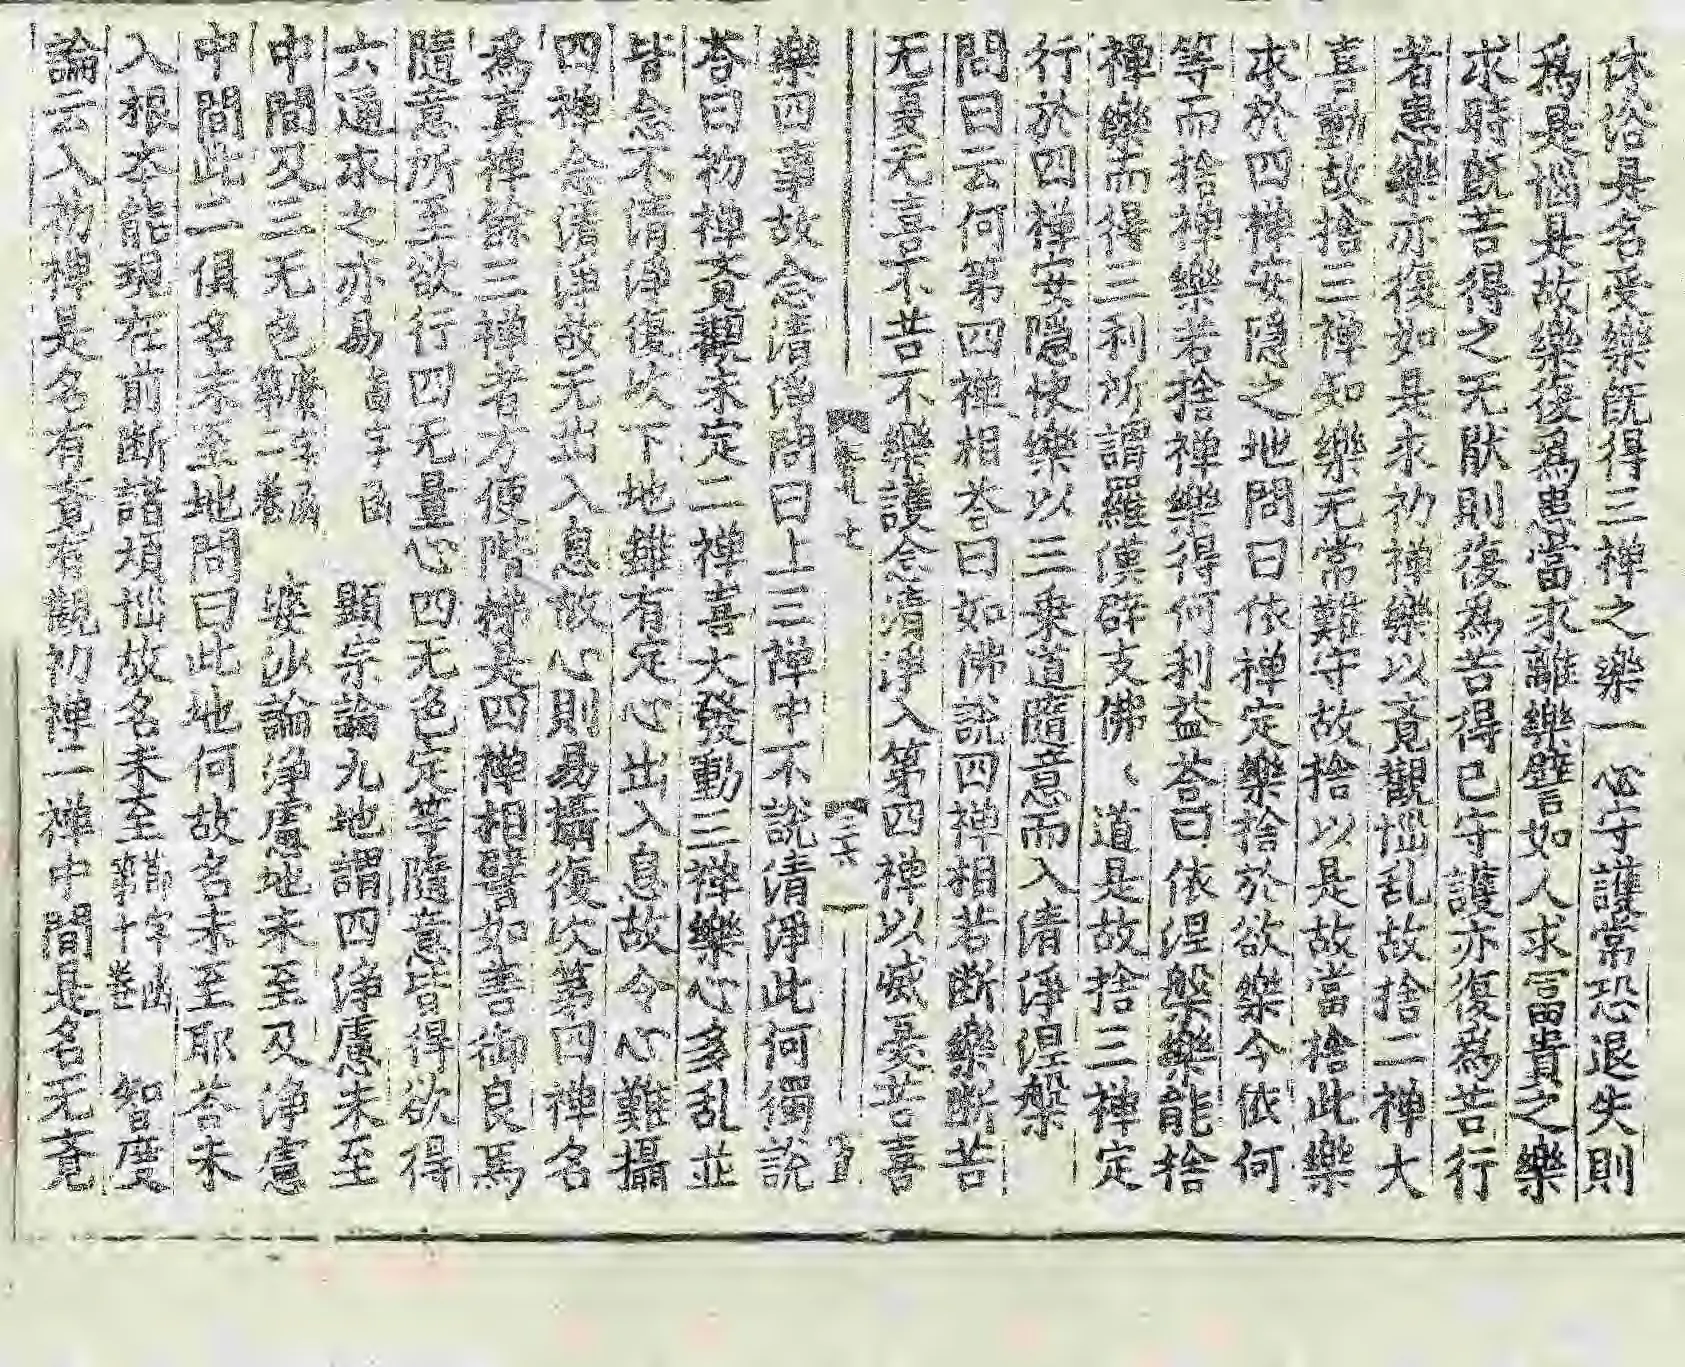 休俗是名受樂既得三禪之樂一心守護常恐退失則
爲是惱是故樂復爲患當求離樂譬如人求富貴之樂
求時既苦得之无猒則復爲苦得已守護亦復爲苦行
者患樂亦復如是求初禪樂以覔觀惱乱故捨二禪大
喜動故捨三禪知樂无常難守故捨以是故當捨此樂
求於四禪安隱之地問曰依禪定樂捨於欲樂今依何
等而捨禪樂若捨禪樂得何利益荅曰依涅槃樂能捨
禪樂而得三利所謂羅漢辟支佛、道是故捨三禪定
行於四禪安隱快樂以三乗道隨意而入清淨涅槃
問曰云何第四禪相荅曰如佛說四禪相若断樂断苦
无憂无喜不苦不樂護念清淨入第四禪以滅憂苦喜
七
二六
樂四事故念清淨問曰上三禪中不說清淨此何獨說
荅曰初禪覔觀未定二禪喜大發動三禪樂心多乱並
皆念不清淨復次下地雖有定心出入息故令心難攝
四禪念清淨故无出入息故心則易攝復次第四禪名
爲真禪餘三禪者方便階梯是四禪相譬如善御良馬
隨意所至欲行四无量心四无色定等隨意皆得欲得
六通求之亦易 顯宗論九地謂四淨慮未至
中間及三无色 婆沙論淨慮地未至及淨慮
中間此二俱名未至地問曰此地何故名未至耶荅未
入根本能現在前断諸煩惱故名未至 智度
論云入初禪是名有覔有觀初禪二禪中間是名无覔